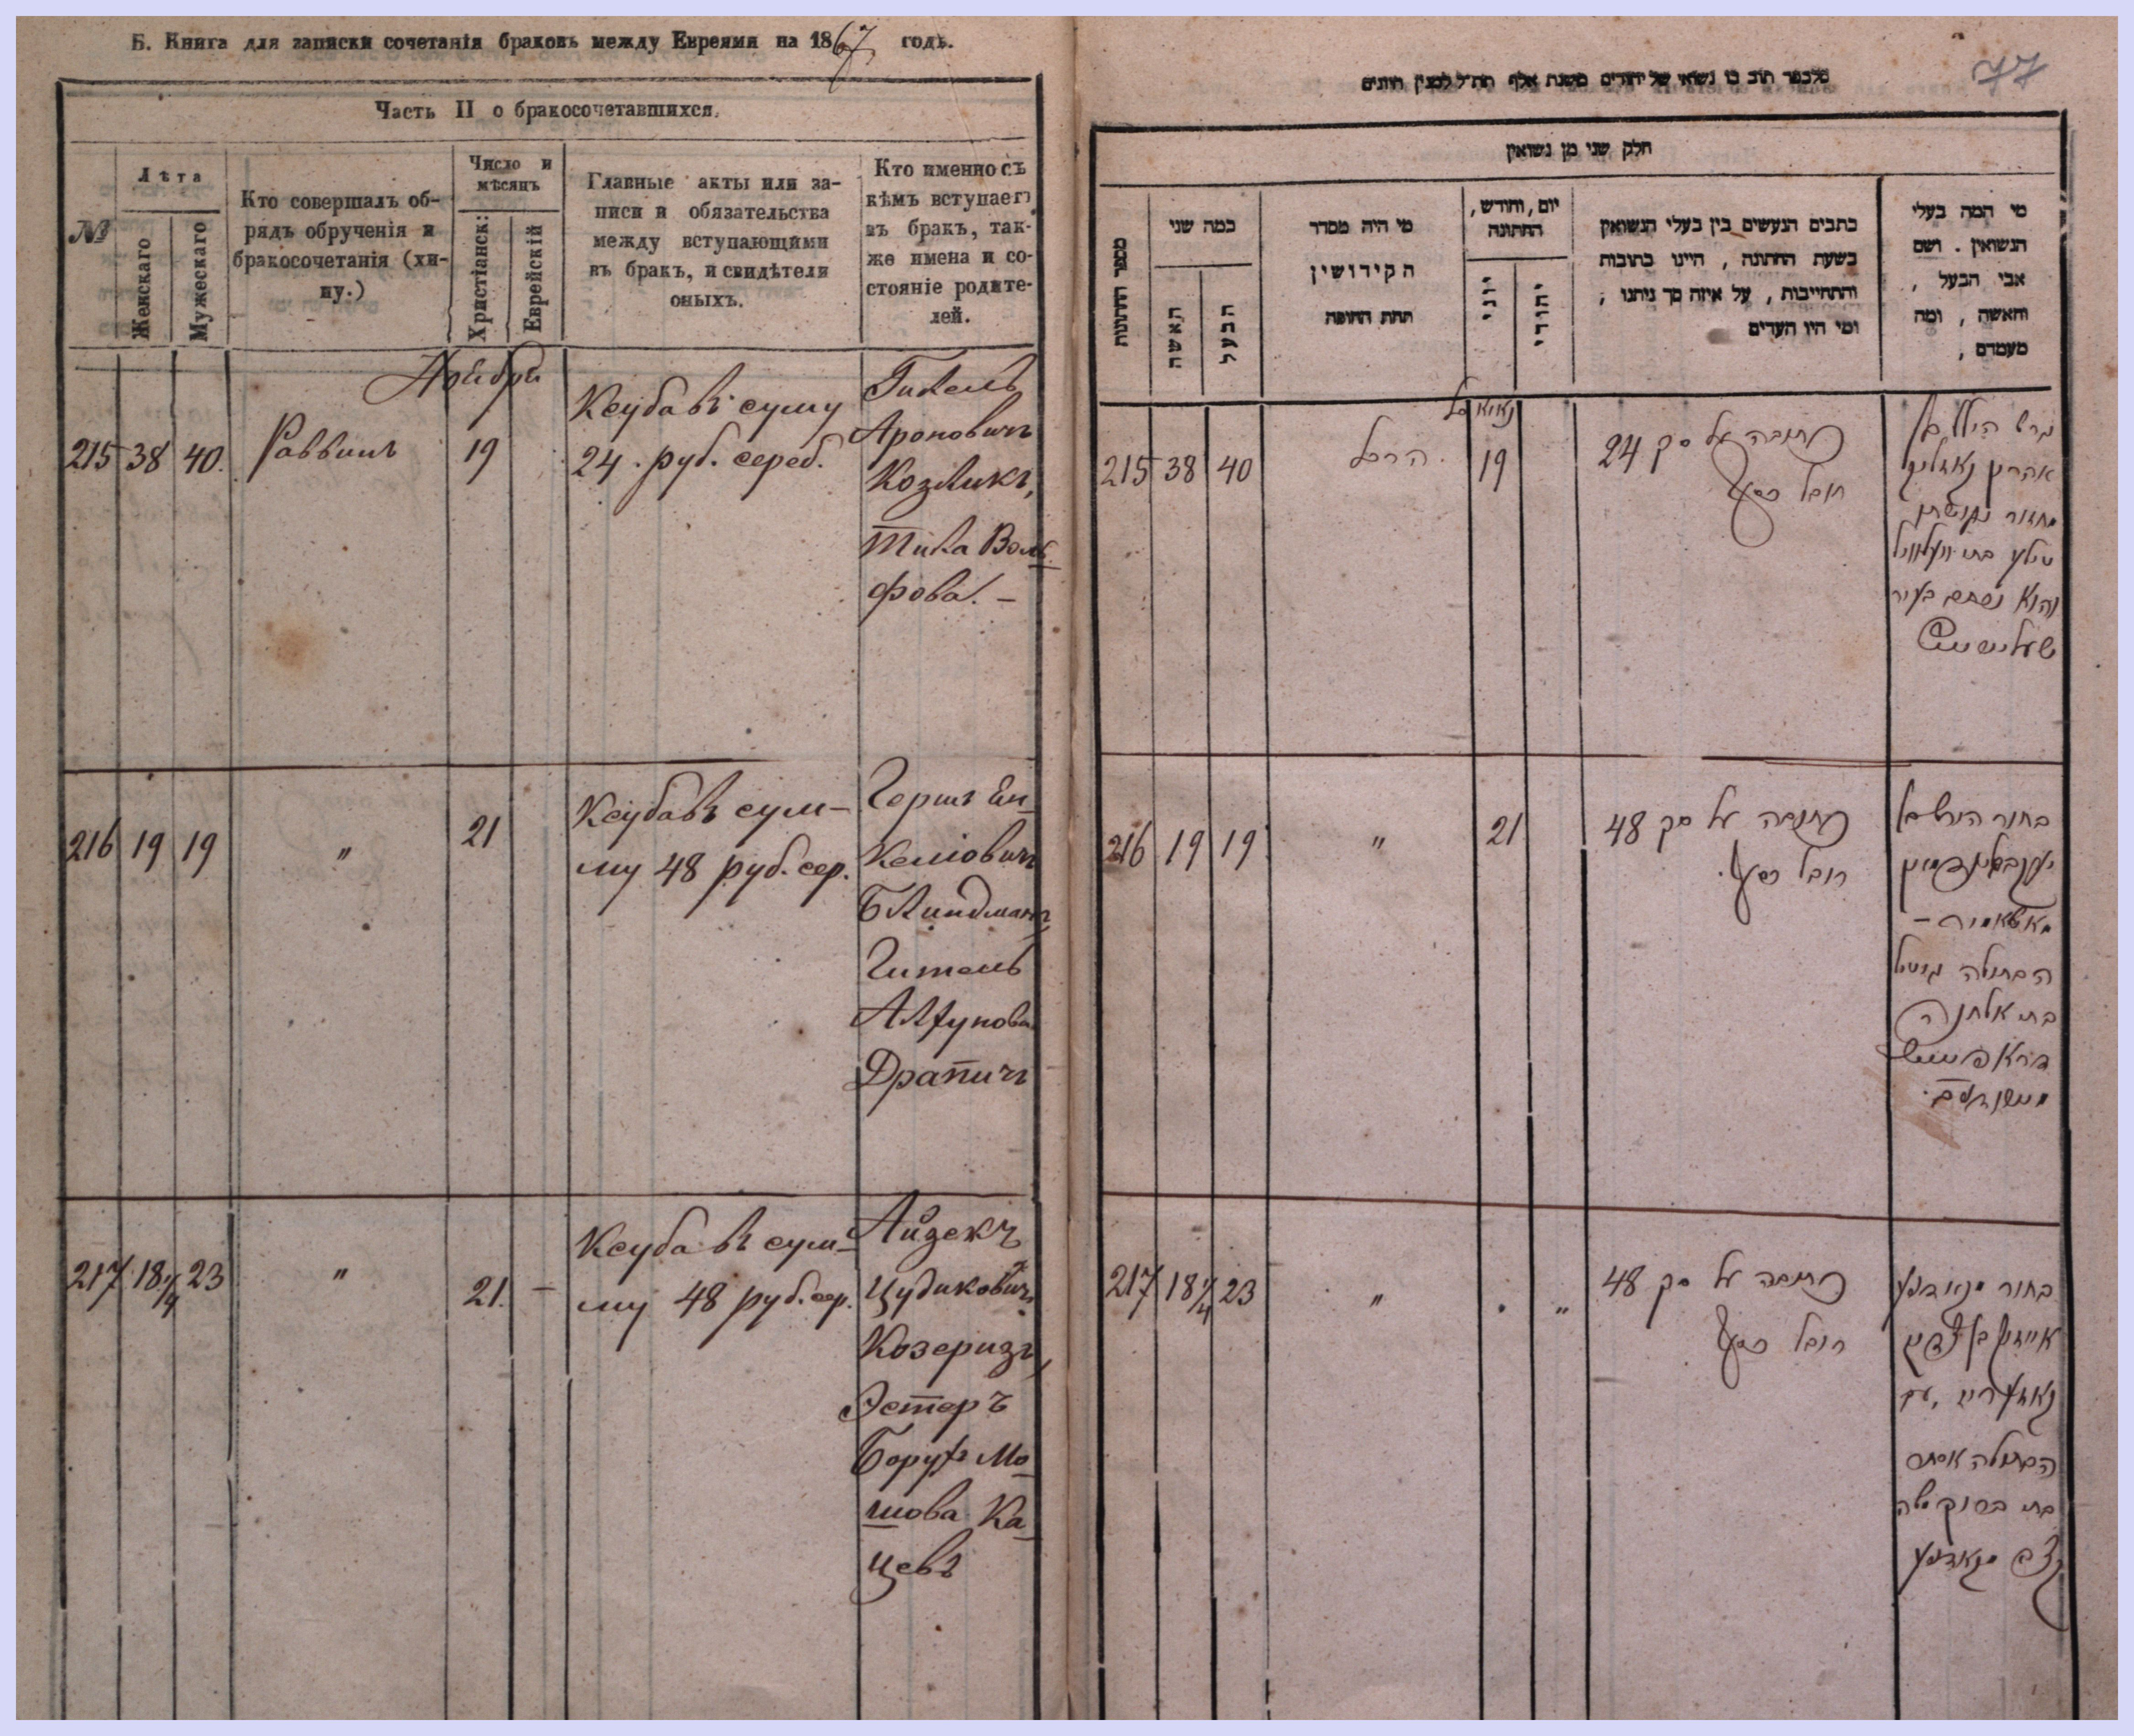 Б. Книга для записки сочетанія браковъ между Евреями на 1867 годъ.
Часть II о бракосочетавшихся.
№
Лѣта
Женскаго
Мужескаго
Кто совершалъ об-
рядъ обрученія и
бракосочетанія (хи-
пу.)
Число и
мѣсяцъ
Христіанск:
Еврейскій
Главные акты или за-
писи и обязательства
между вступающими
въ бракъ, и свидѣтели
оныхъ.
Кто именно съ
кѣмъ вступаетъ
въ бракъ, так-
же имена и со-
стояніе родите-
лей.
Ноября
215 38 40. Раввинъ 19
Ксуба въ суму
24. руб. сереб.
Гилель
Ароновичъ
Козликъ,
Тила Воль
фова. —
216 19 19 " 21
Ксуба въ сум-
му 48 руб. сер.
Гершъ Ен
келіовичъ
Блиндманъ
Гитель
Алхунова
Драпичъ
217 18 1/4 23 " 21. —
Ксуба въ сум-
му 48 руб. сер.
Айзекъ
Цудиковичъ
Козеризъ,
Эстеръ
Борухъ Мо
шова Ка
цевъ
77
חלק שני מן נשואין
מספר החתונות
כמה שני
האשה
הבעל
מי היה מסדר
הקידושין
תחת החופה
יום, וחודש,
החתונה
יוני
יהודי
כתבים הנעשים בין בעלי הנשואין
בשעת החתונה, היינו כתובות
והתחייבות, על איזה סך ניתנו;
ומי היו העדים
מי המה בעלי
הנשואין. ושם
אבי הבעל,
והאשה, ומה
מעמדם,
215 38 40 הרב 19
כתובה על סק 24
רובל כסף
אהרן קאזליק
216 19 19 " 21
כתובה על סק 48
רובל כסף.
בחור הירש בן
הבתולה גיטל
בת אלחנן
217 18 1/4 23 " . "
כתובה על סק 48
רובל כסף
בחור
אייזיק בן
קאזעריז, עם
הבתולה אסתר
בת ברוך משה